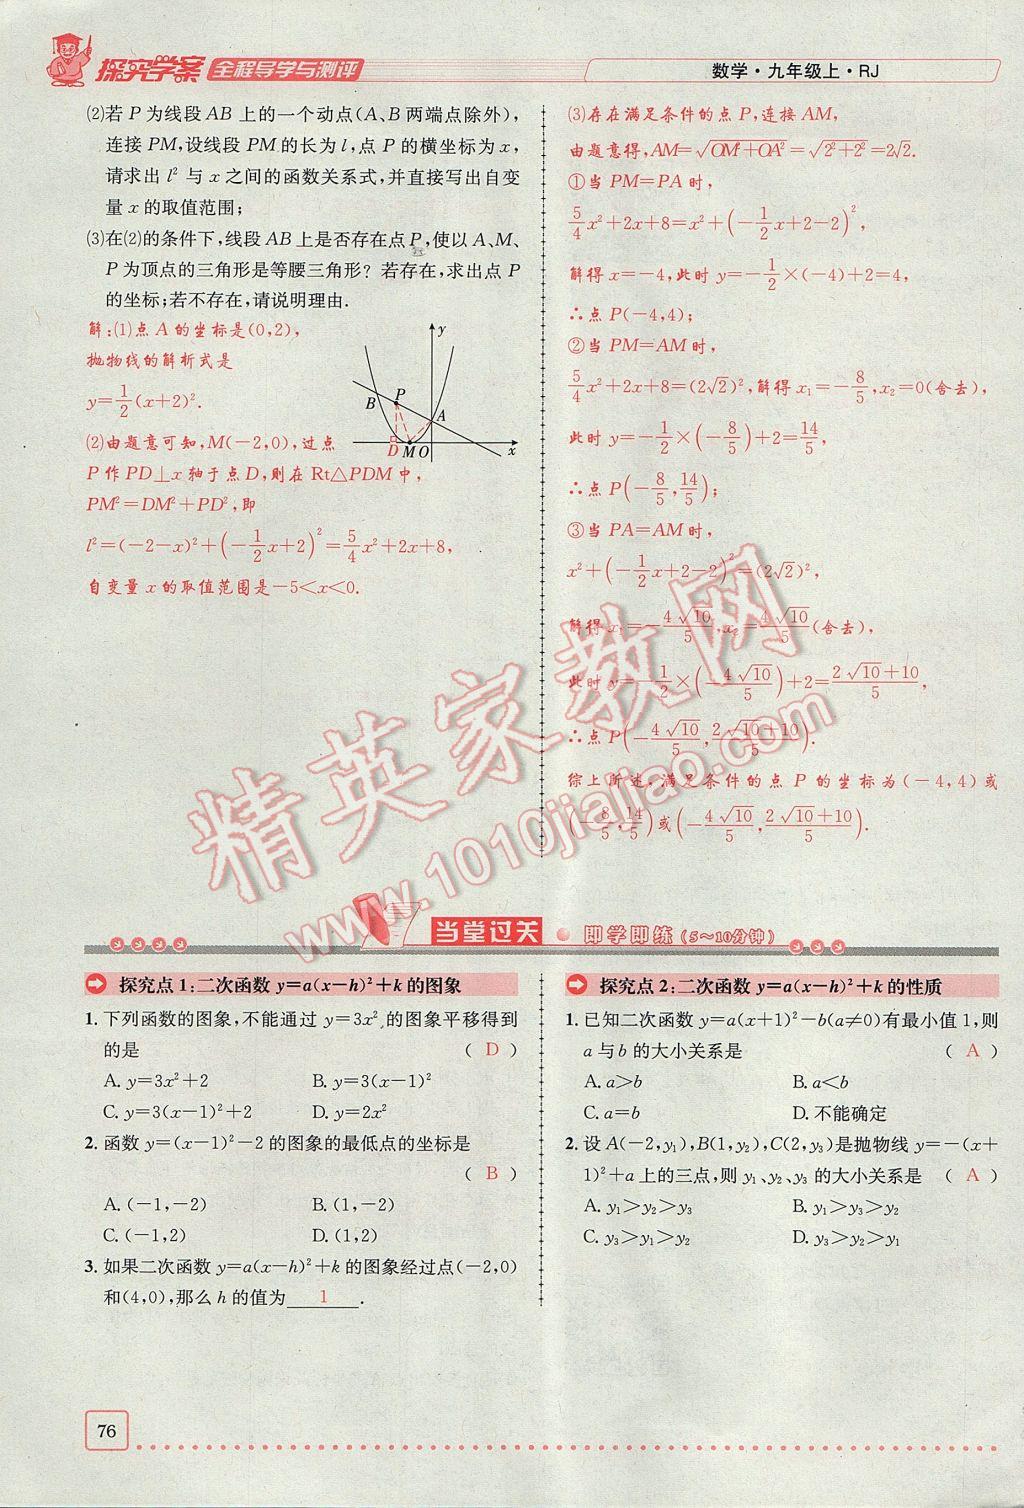 探究学案 全程导学与测评
数学·九年级上·RJ
(2)若 P 为线段 AB 上的一个动点(A、B 两端点除外),
连接 PM,设线段 PM 的长为 l,点 P 的横坐标为 x,
请求出 l² 与 x 之间的函数关系式,并直接写出自变
量 x 的取值范围;
(3)在(2)的条件下,线段 AB 上是否存在点 P,使以 A、M、
P 为顶点的三角形是等腰三角形? 若存在,求出点 P
的坐标;若不存在,请说明理由.
解:(1)点 A 的坐标是(0,2),
抛物线的解析式是
y=1/2(x+2)².
(2)由题意可知,M(-2,0),过点
P 作 PD⊥x 轴于点 D,则在 Rt△PDM 中,
PM²=DM²+PD²,即
l²=(-2-x)²+(-1/2x+2)²=5/4x²+2x+8,
自变量 x 的取值范围是-5<x<0.
y
B
P
A
D
M
O
x
(3)存在满足条件的点 P,连接 AM,
由题意得,AM=√(OM²+OA²)=√(2²+2²)=2√2.
①当 PM=PA 时,
5/4x²+2x+8=x²+(-1/2x+2-2)²,
解得 x=-4,此时 y=-1/2×(-4)+2=4,
∴点 P(-4,4);
②当 PM=AM 时,
5/4x²+2x+8=(2√2)²,解得 x₁=-8/5,x₂=0(舍去),
此时 y=-1/2×(-8/5)+2=14/5,
∴点 P(-8/5,14/5);
③当 PA=AM 时,
x²+(-1/2x+2-2)²=(2√2)²,
解得 x₁=-4√10/5,x₂=4√10/5(舍去),
此时 y=-1/2×(-4√10/5)+2=(2√10+10)/5,
∴点 P(-4√10/5,(2√10+10)/5).
综上所述,满足条件的点 P 的坐标为(-4,4)或
(-8/5,14/5)或(-4√10/5,(2√10+10)/5).
精英家教网
www.1010jiajiao.com
当堂过关 ● 即学即练(5~10分钟)
探究点 1:二次函数 y=a(x-h)²+k 的图象
1. 下列函数的图象,不能通过 y=3x² 的图象平移得到
的是 ( D )
A. y=3x²+2 B. y=3(x-1)²
C. y=3(x-1)²+2 D. y=2x²
2. 函数 y=(x-1)²-2 的图象的最低点的坐标是
( B )
A. (-1,-2) B. (1,-2)
C. (-1,2) D. (1,2)
3. 如果二次函数 y=a(x-h)²+k 的图象经过点(-2,0)
和(4,0),那么 h 的值为 1 .
探究点 2:二次函数 y=a(x-h)²+k 的性质
1. 已知二次函数 y=a(x+1)²-b(a≠0)有最小值 1,则
a 与 b 的大小关系是 ( A )
A. a>b B. a<b
C. a=b D. 不能确定
2. 设 A(-2,y₁),B(1,y₂),C(2,y₃)是抛物线 y=-(x+
1)²+a 上的三点,则 y₁、y₂、y₃ 的大小关系是 ( A )
A. y₁>y₂>y₃ B. y₁>y₃>y₂
C. y₃>y₁>y₂ D. y₃>y₂>y₁
76